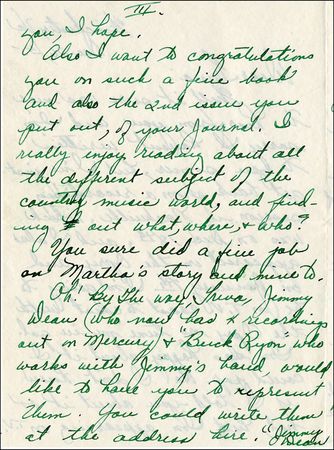 III.
you, I hope.
Also I want to congratulations
you on such a fine book
and also the 2nd issue you
put out, of your Journal. I
really enjoy reading about all
the different subject of the
country music world, and find-
ing out what, where, & who?
You sure did a fine job
on Martha's story and mine to.
Oh! By the way, Treva, Jimmy
Dean (who now has records
out on Mercury) & "Buck Ryon" who
works with Jimmy's band, would
like to have you to represent
them. You could write them
at the address here. "Jimmy
Dean